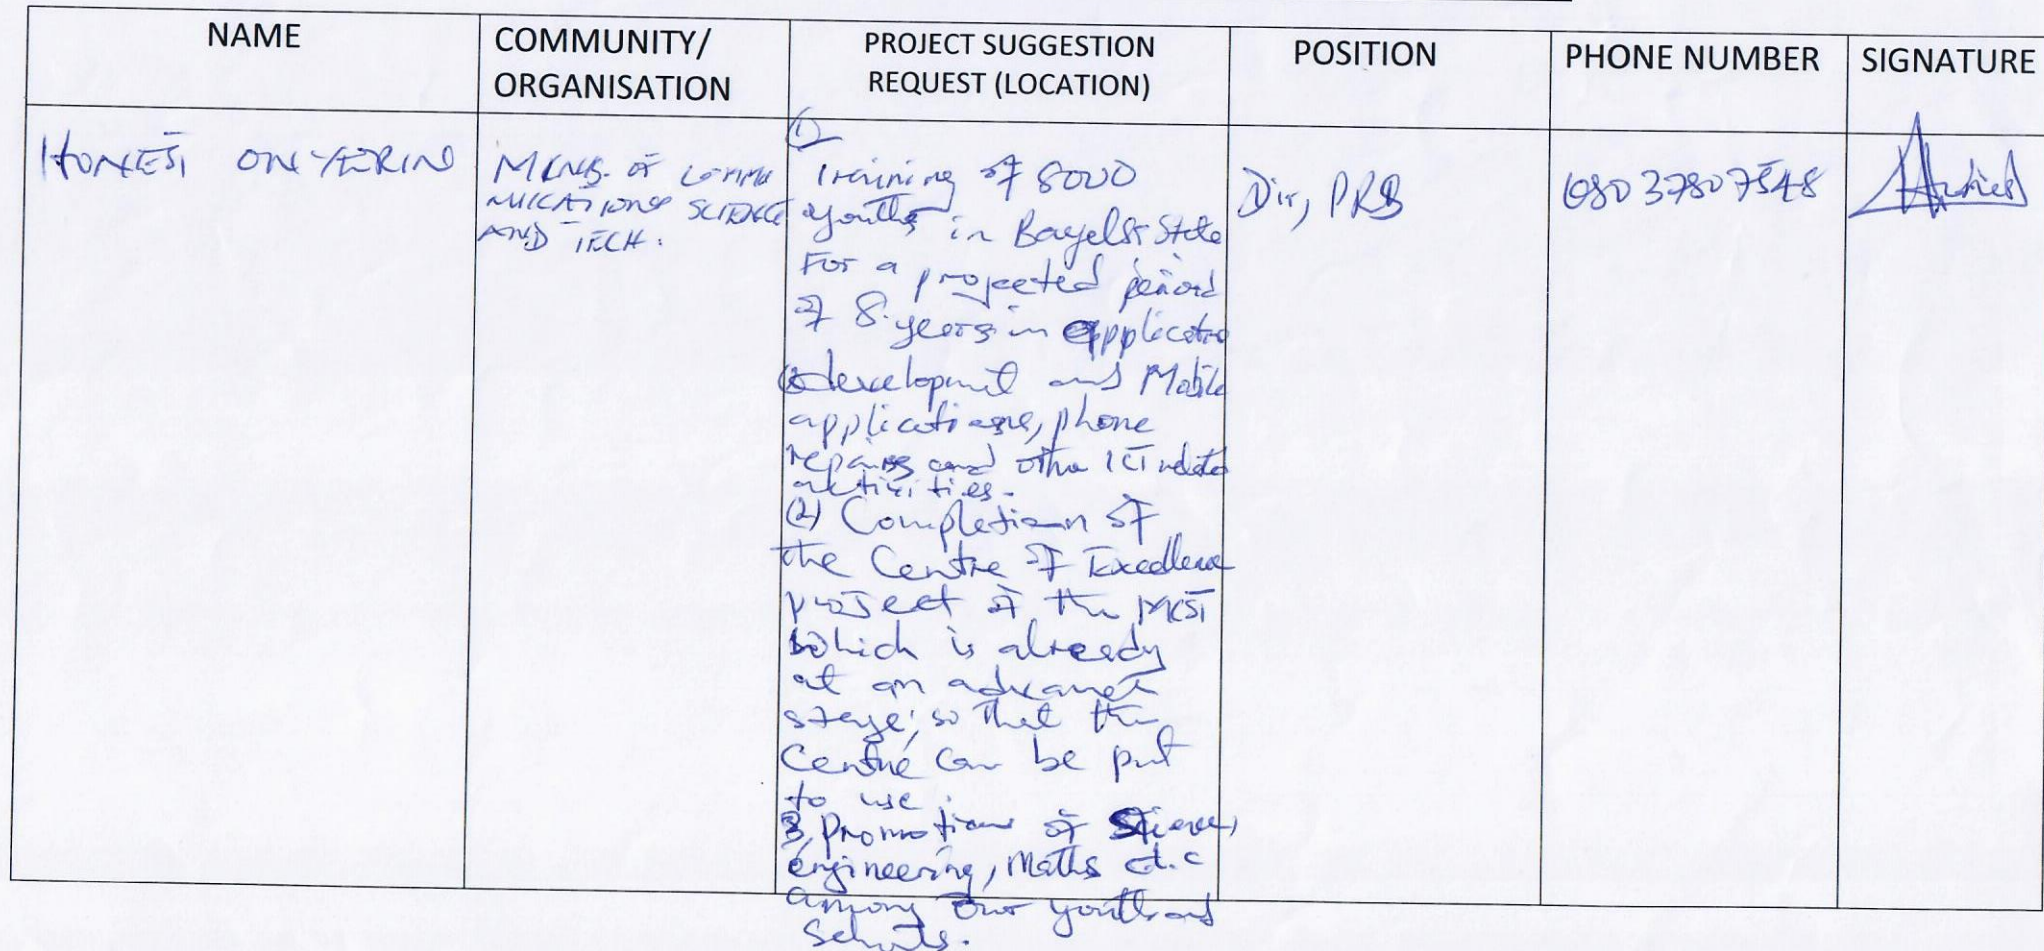 NAME
COMMUNITY/
ORGANISATION
PROJECT SUGGESTION
REQUEST (LOCATION)
POSITION
PHONE NUMBER
SIGNATURE
HONEST
MINIS. OF COMMU
NICATIONS SCIENCE
AND TECH.
(1)
Training of 8000
youths in Bayelsa State
For a projected period
of 8 years in applicatio
development and Mobile
applications, phone
repairs and other ICT related
activities.
(2) Completion of
the Centre of Excellence
project of the MCST
which is already
at an advanced
stage, so that the
Centre can be put
to use.
3, Promotion of Science,
engineering, Maths et.c
among our youth and
Schools.
Dir, PRS
08037807548